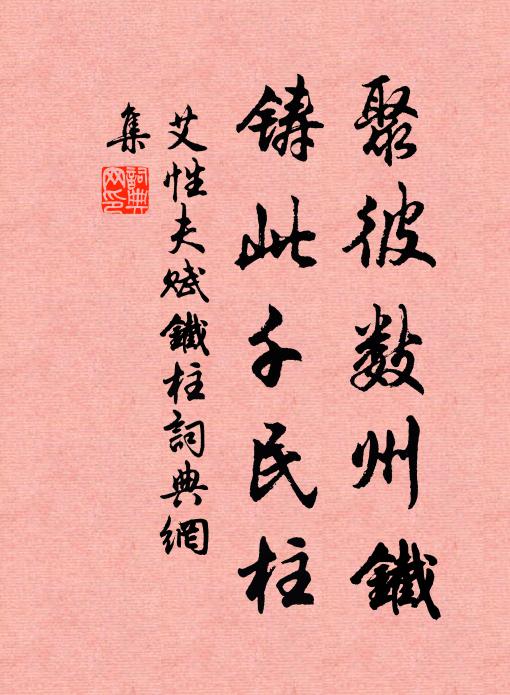 聚彼数州鐵
鋳此千民柱
艾性夫赋鐵柱詞典網
集
詞典
网印